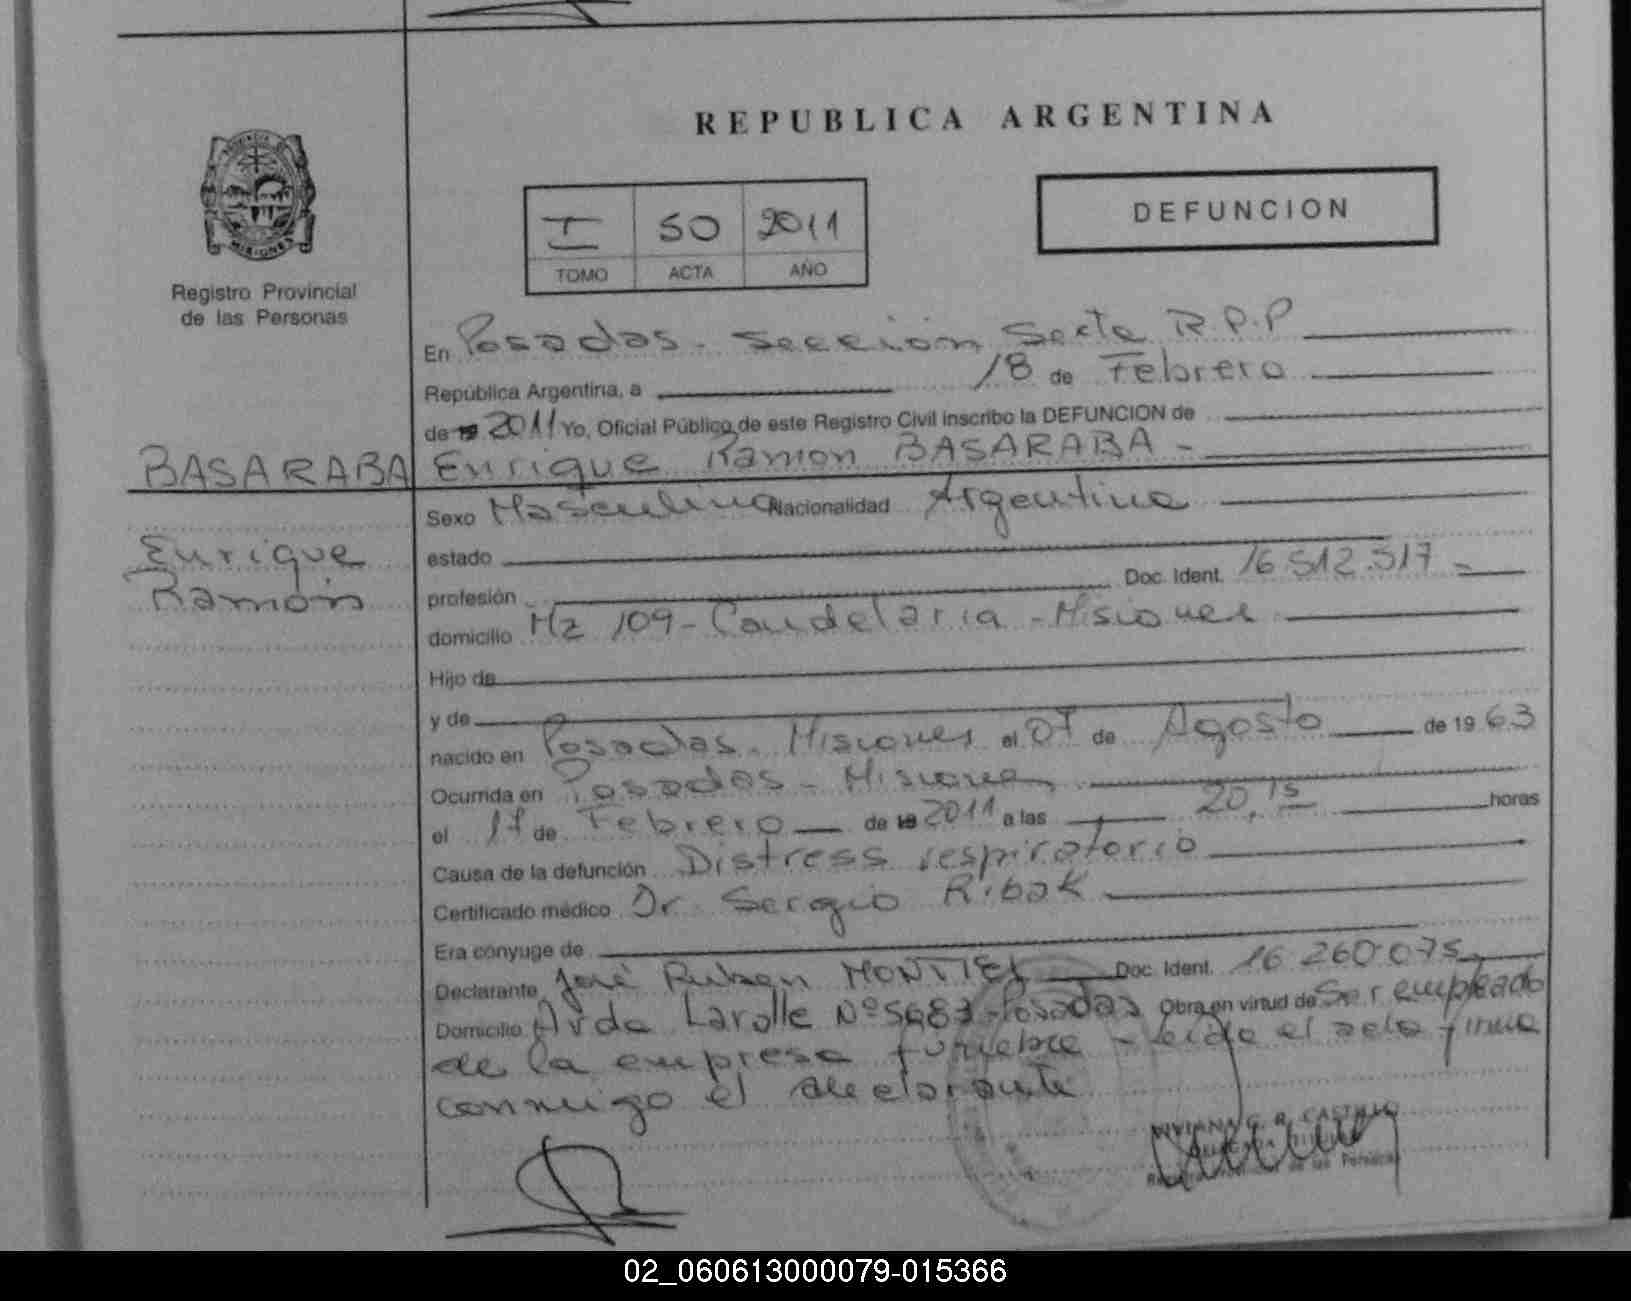 REPUBLICA ARGENTINA
PROVINCIA DE
MISIONES
Registro Provincial
de las Personas
I 50 2011
TOMO ACTA AÑO
DEFUNCION
En Posadas - Sección Sexta R.P.P
República Argentina, a 18 de Febrero
de 19 2011 Yo, Oficial Público de este Registro Civil inscribo la DEFUNCION de
BASARABA Enrique Ramon BASARABA -
Enrique
Ramón
Sexo Masculino Nacionalidad Argentina
estado
profesión Doc. Ident. 16 512.517 -
domicilio Mz 109 - Candelaria - Misiones
Hijo de
y de
nacido en Posadas - Misiones el 07 de Agosto de 19 63
Ocurrida en Posadas - Misiones
el 17 de Febrero de 19 2011 a las 20,15 horas
Causa de la defunción Distress respiratorio
Certificado médico Dr. Sergio Ribak
Era cónyuge de
Declarante José Ruben MONTIEL Doc. Ident. 16 260.075
Domicilio Avda Lavalle Nº 5683 - Posadas Obra en virtud de Ser empleado
de la empresa funebre - leida el acta firma
conmigo el declarante
VIVIANA G. R. CASTILLO
de las Personas
02_060613000079-015366